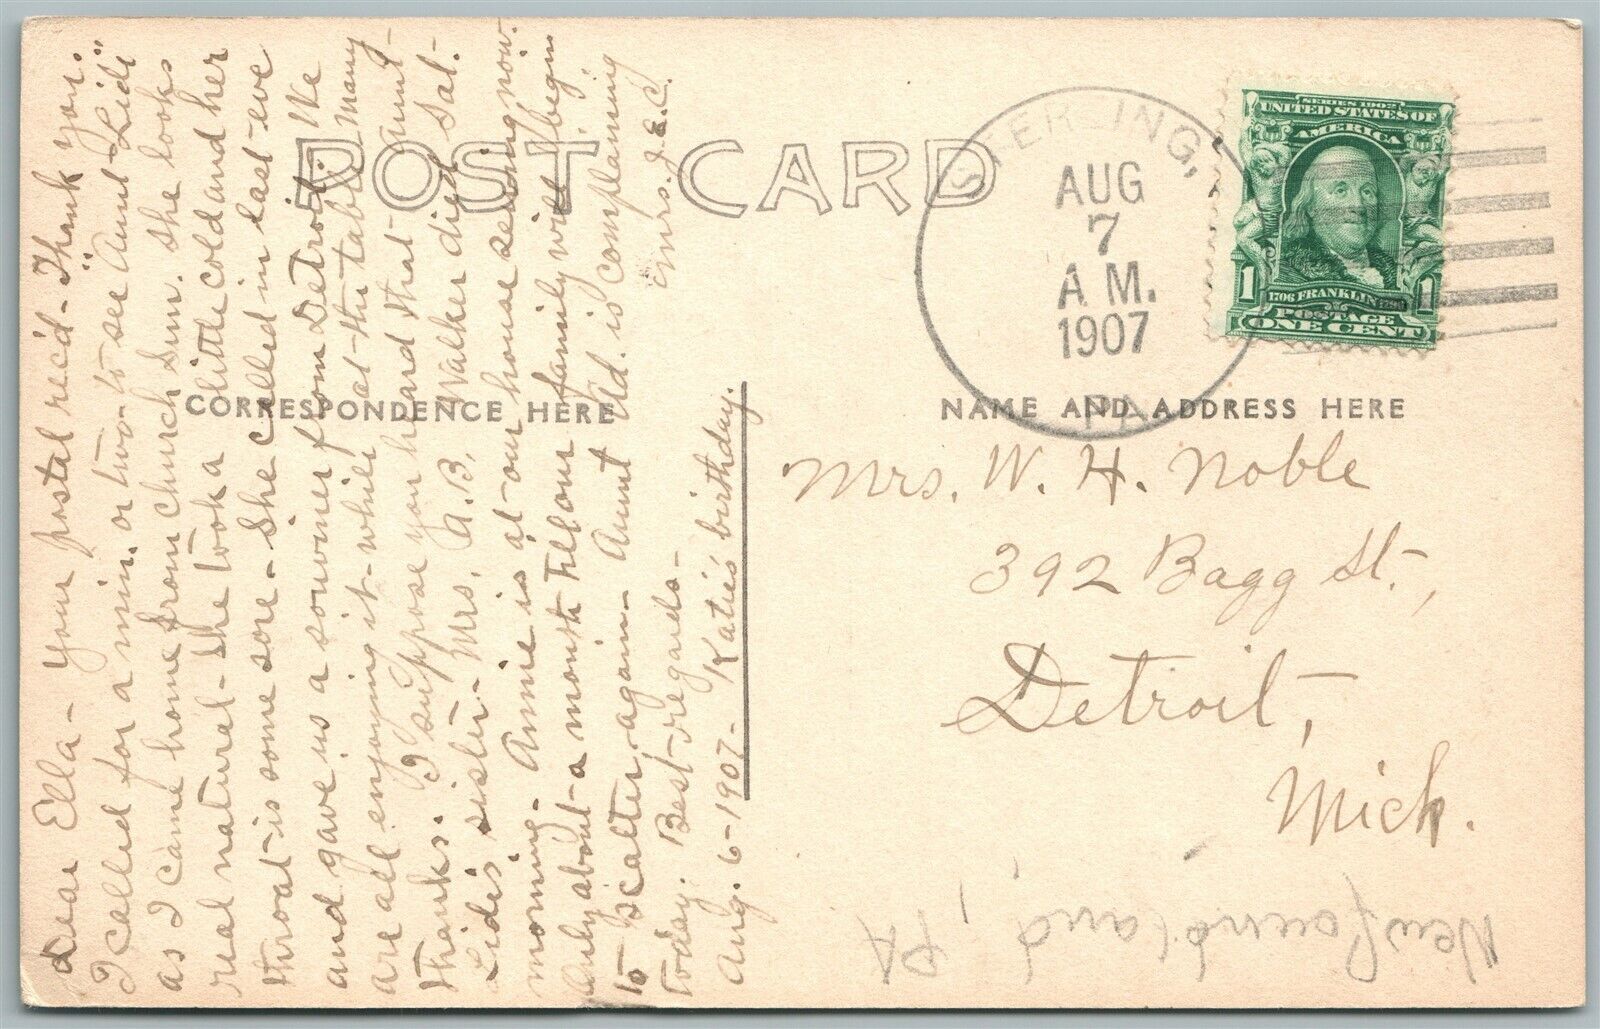 POST CARD
CORRESPONDENCE HERE
NAME AND ADDRESS HERE
Dear Ella - Your postal rec'd - Thank you.
I called for a min. or two to see "Aunt Lide"
as I came home from Church Sun. She looks
real natural - She took a little cold and her
throat is some sore - She called in last eve
and gave us a souvner from Detroit. We
are all enjoying it while at the table. Many
thanks. I suppose you heard that Aunt
Lide's sister - Mrs. A. B. Walker died Sat.
morning. Annie is at our house sewing now.
Only about a month till our family will begin
to scatter again - Aunt Ad. is complaining
today. Best regards - Mrs. J. E. C.
Aug. 6 - 1907 - Katie's birthday.
STERLING,
AUG
7
A M.
1907
PA
SERIES 1902
UNITED STATES OF
AMERICA
1 1
1706 FRANKLIN 1790
POSTAGE
ONE CENT
Mrs. W. H. Noble
392 Bagg St.,
Detroit,
Mich.
Newfoundland, PA